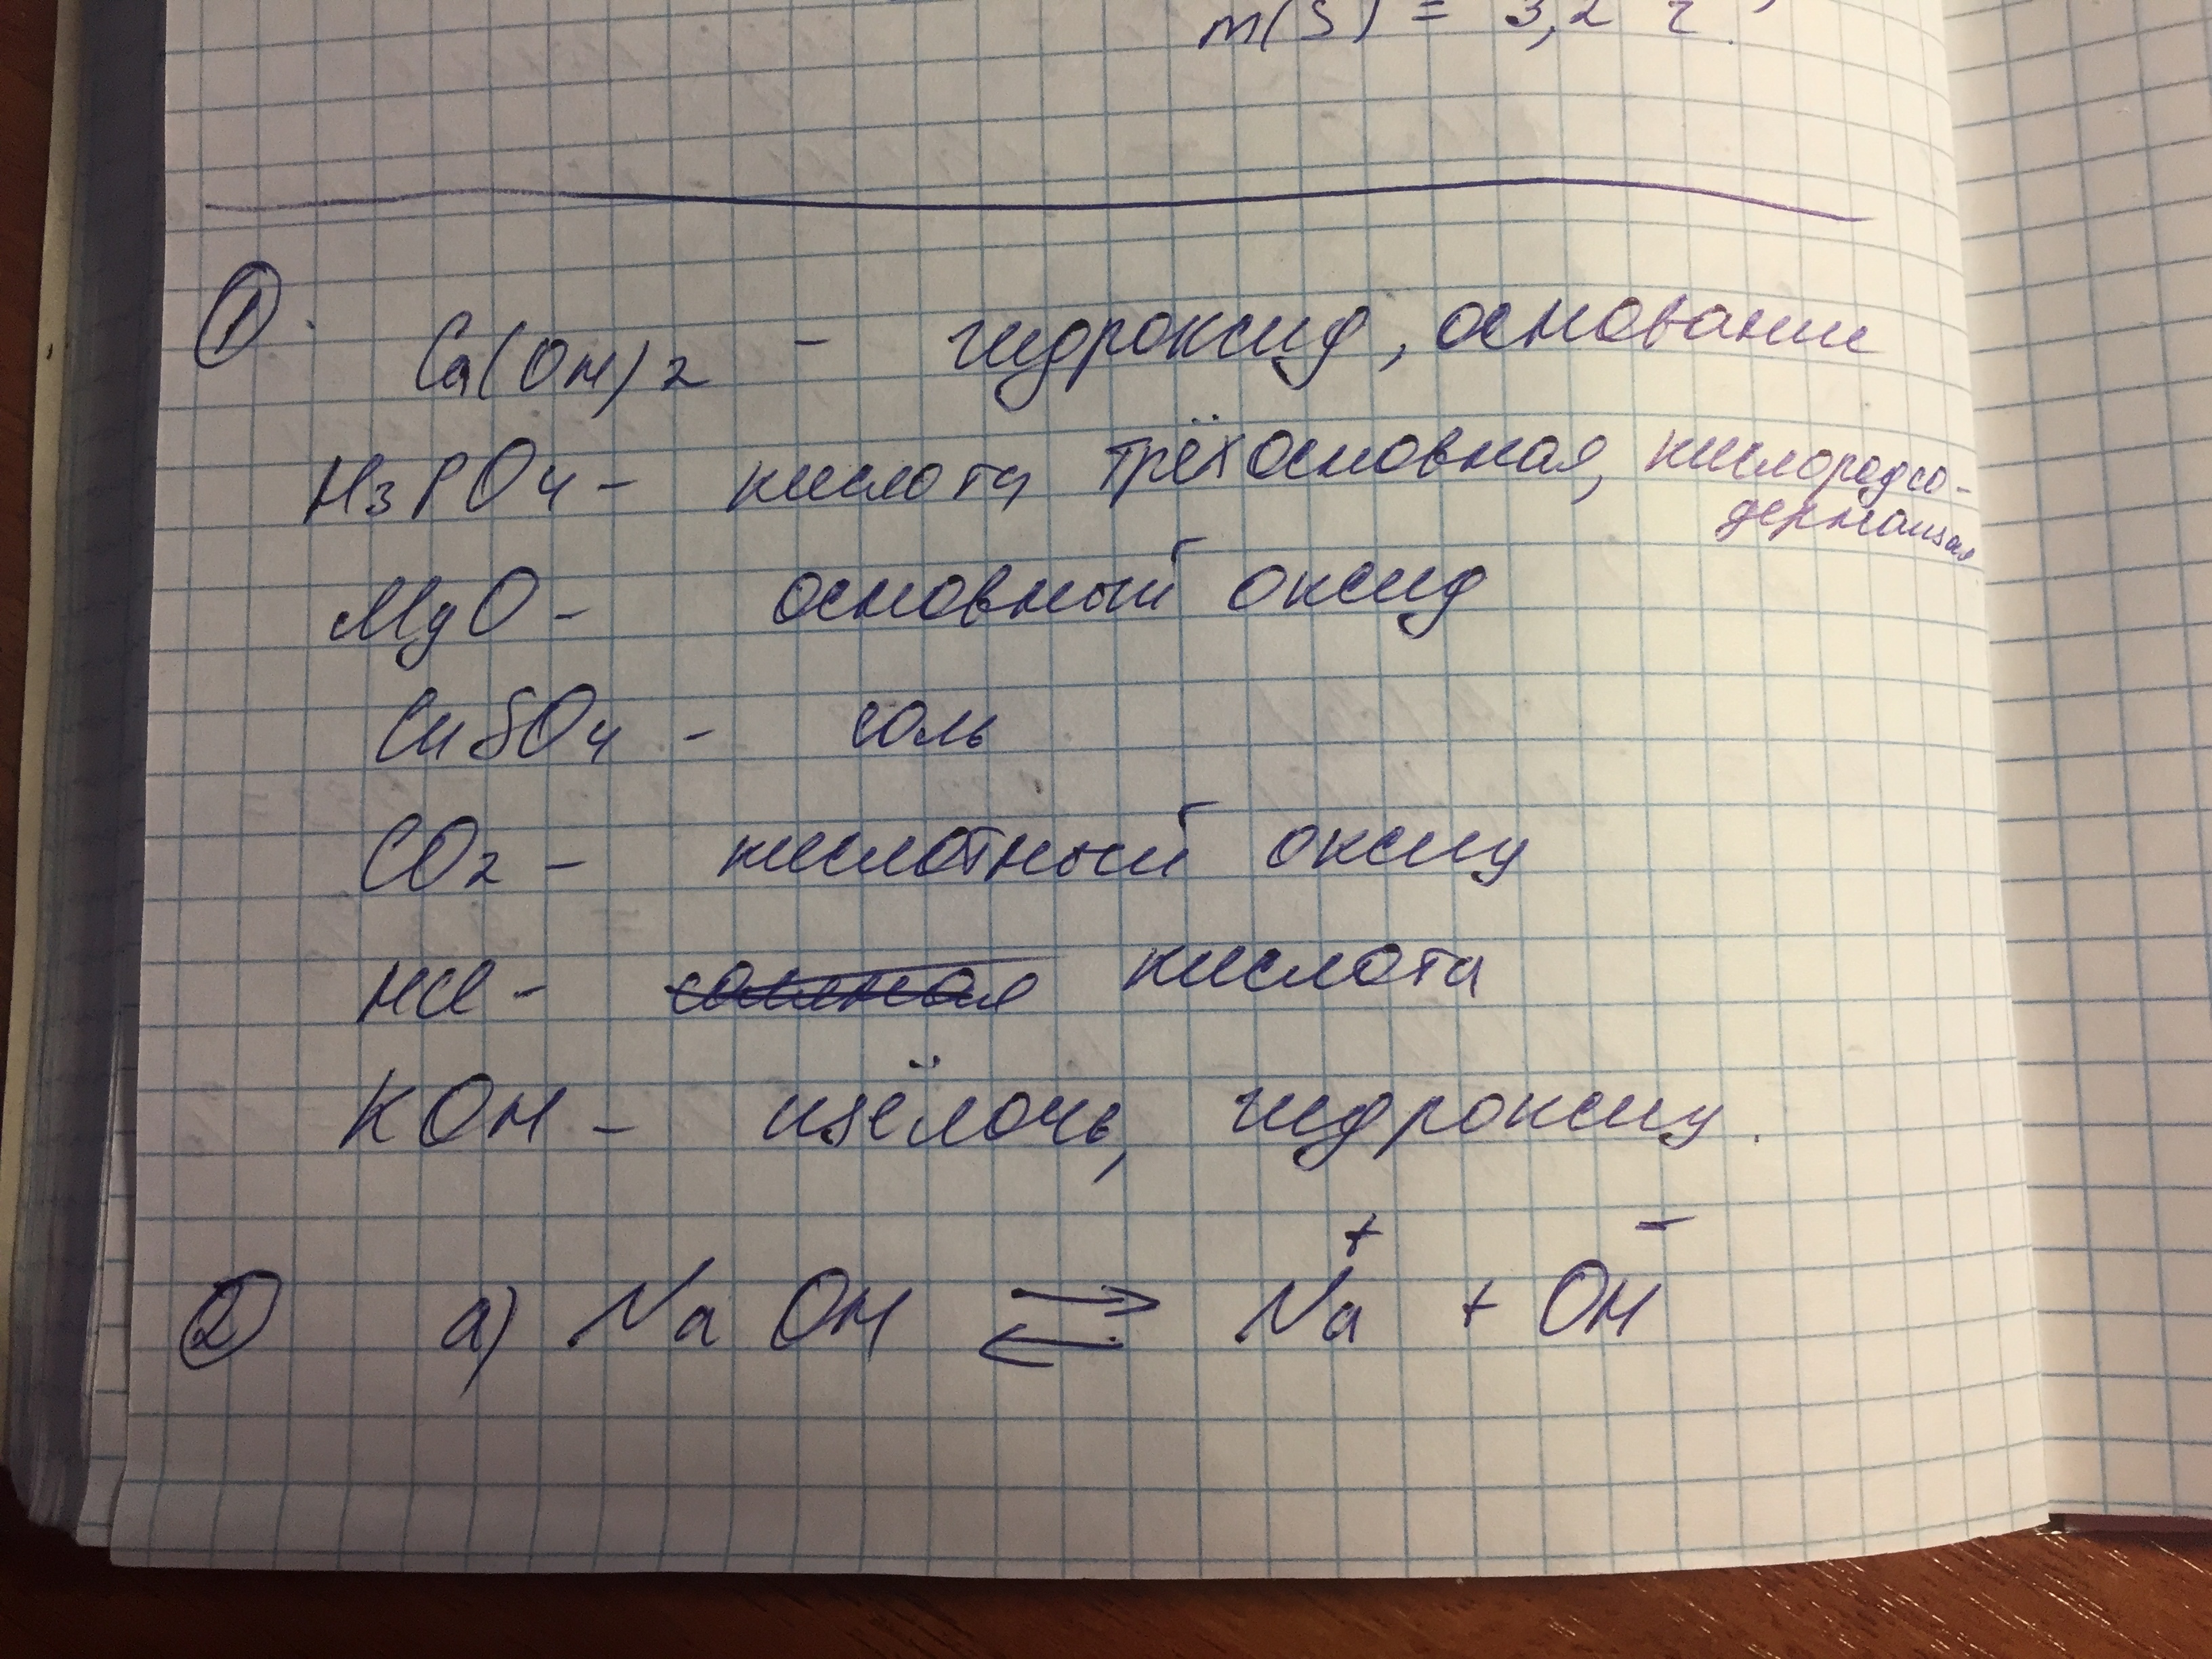 m(S) = 3,2 г.
① Ca(OH)2 - гидроксид, основание
H3PO4 - кислота трёхосновная, кислородсо-
держащая
MgO - основный оксид
CuSO4 - соль
CO2 - кислотный оксид
HCl - соляная кислота
KOH - щёлочь, гидроксид.
② а) NaOH ⇄ Na⁺ + OH⁻